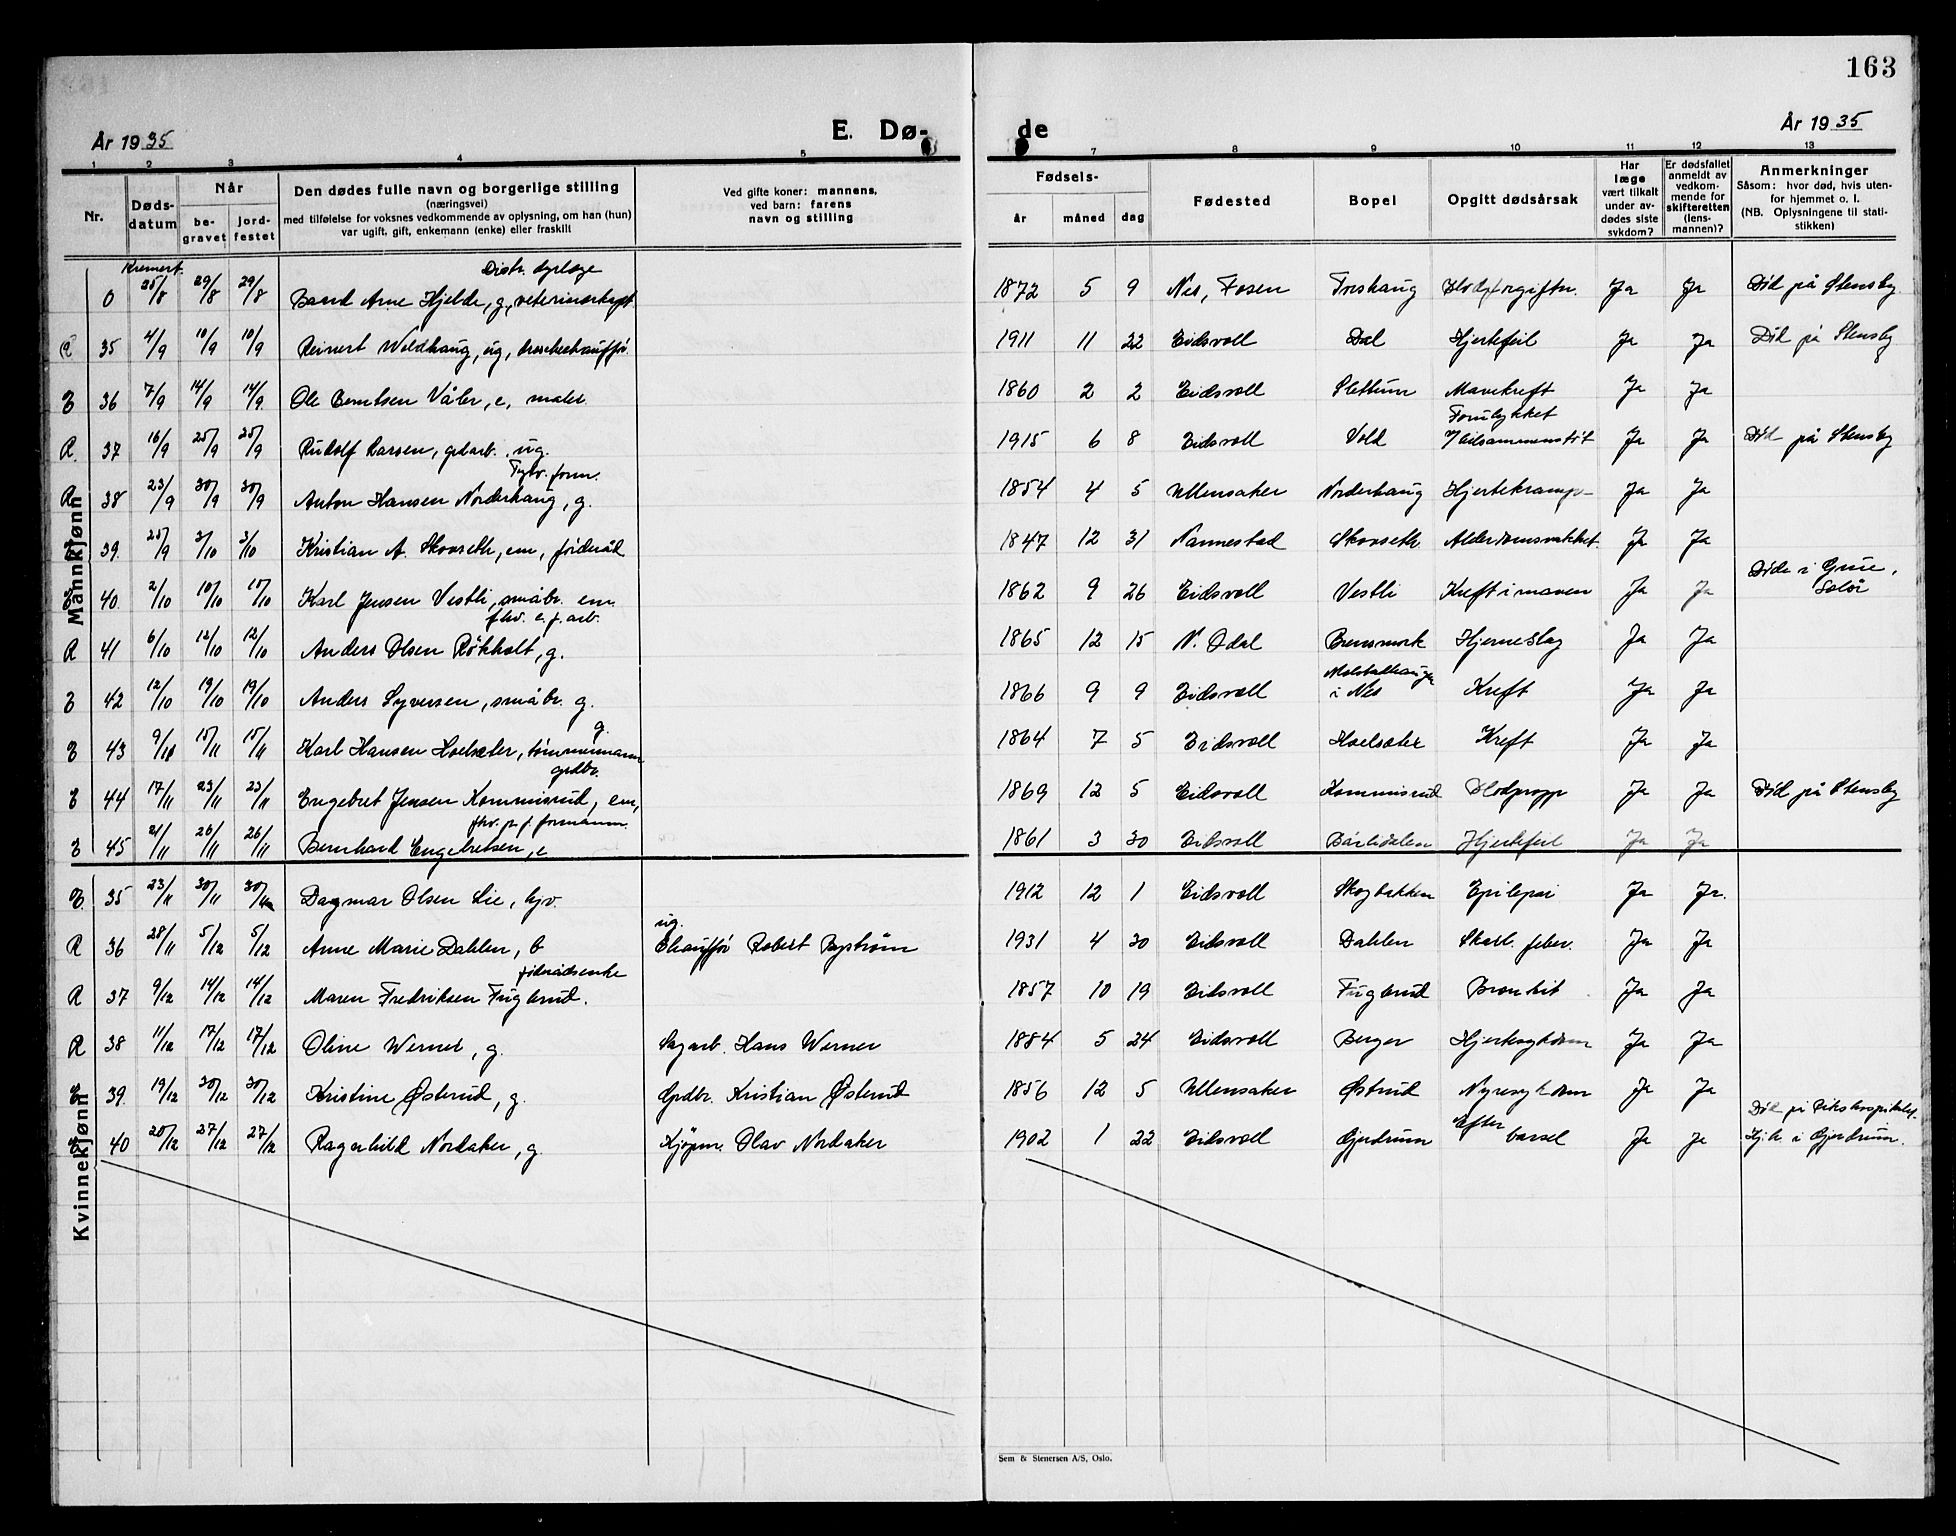 163
År 1935 E. Dø- de År 1935
1 2 3 4 5 7 8 9 10 11 12 13
Nr. Dødsdatum Når begravet jordfestet
Den dødes fulle navn og borgerlige stilling
(næringsvei)
med tilføielse for voksnes vedkommende av oplysning, om han (hun)
var ugift, gift, enkemann (enke) eller fraskilt
Ved gifte koner: mannens,
ved barn: farens
navn og stilling
Fødsels- år måned dag
Fødested Bopel Opgitt dødsårsak
Har læge vært tilkalt under avdødes siste sykdom?
Er dødsfallet anmeldt av vedkommende for skifteretten (lensmannen)?
Anmerkninger
Såsom: hvor død, hvis utenfor hjemmet o. l.
(NB. Oplysningene til statistikken)
Mannkjønn
Kremert. Distr. dyrlæge
0 25/8 29/8 29/8 Baard Arne Hjelde, g, veterinærkapt. 1872 5 9 Nes, Fosen Blodforgiftn. Ja Ja Död på Stensby
35 4/9 10/9 10/9 Reinert Woldhaug, ug, 1911 11 22 Eidsvoll Dal Hjertefeil Ja Ja Död på Stensby
E 36 7/9 14/9 14/9 Ole Berntsen Våler, e, maler 1860 2 2 Eidsvoll Slettum Mavekreft Ja Ja
Forulykket
R. 37 16/9 25/9 25/9 Rudolf Larsen, grdarb., ug. 1915 6 8 Eidsvoll Vold v/ bilsammenstöt Ja Ja Död på Stensby
form.
R 38 23/9 30/9 30/9 Anton Hansen Norderhaug, g. 1854 4 5 Ullensaker Norderhaug Hjertekrampe Ja Ja
39 25/9 3/10 3/10 Kristian A. Skovseth, em, föderåd 1847 12 31 Nannestad Skovseth Alderdomsvakket. Ja Ja
E 40 2/10 10/10 10/10 Karl Jensen Vestli, småbr. em. 1862 9 26 Eidsvoll Vestli Kreft i maven Ja Ja Döde i Grue, Solör
fhv. e. j. arb.
R 41 6/10 12/10 12/10 Anders Olsen Rökholt, g. 1865 12 15 N. Odal Brensmork Hjerneslag Ja Ja
E 42 12/10 19/10 19/10 Anders Syversen, småbr. g. 1866 9 9 Eidsvoll i Nes Kreft Ja Ja
g.
E 43 9/11 15/11 15/11 Karl Hansen Hoelsæter, tömmermann 1864 7 5 Eidsvoll Hoelsæter Kreft Ja Ja
grdbr.
E 44 17/11 23/11 23/11 Engebret Jensen Kommisrud, em, 1869 12 5 Eidsvoll Kommisrud Blodpropp Ja Ja Död på Stensby
fhv. formann.
E 45 21/11 26/11 26/11 Bernhard Engebretsen, e 1861 3 30 Eidsvoll Bårlidalen Hjertefeil Ja Ja
Kvinnekjønn
E. 35 23/11 30/11 30/11 Dagmar Olsen Lie, hjv. 1912 12 1 Eidsvoll Skogbakken Epilepsi Ja Ja.
ug.
R 36 28/11 5/12 5/12 Anne Marie Dahlen, b Chauffför Robert Byström 1931 4 30 Eidsvoll Dahlen Skarl. feber. Ja Ja
föderådsenke
R 37 9/12 14/12 14/12 Maren Fredriksen Fuglerud. 1857 10 19 Eidsvoll Fuglerud Bronkit Ja Ja
R 38 11/12 17/12 17/12 Oline Werner, g. Sagarb. Hans Werner 1884 5 24 Eidsvoll Berger Hjertesykdom Ja Ja
E 39. 19/12 30/12 30/12 Kristine Østerud, g. Grdbr. Kristian Østerud 1856 12 5 Ullensaker Østrud Nyresykdom Ja Ja
Död på Rikshospitalet.
40 20/12 27/12 27/12 Ragnhild Nordaker, g. Kjöpm. Olav Nordaker 1902 1 22 Eidsvoll Gjerdrum Efter barsel Ja Ja i Gjerdrum.
Sem & Stenersen A/S, Oslo.